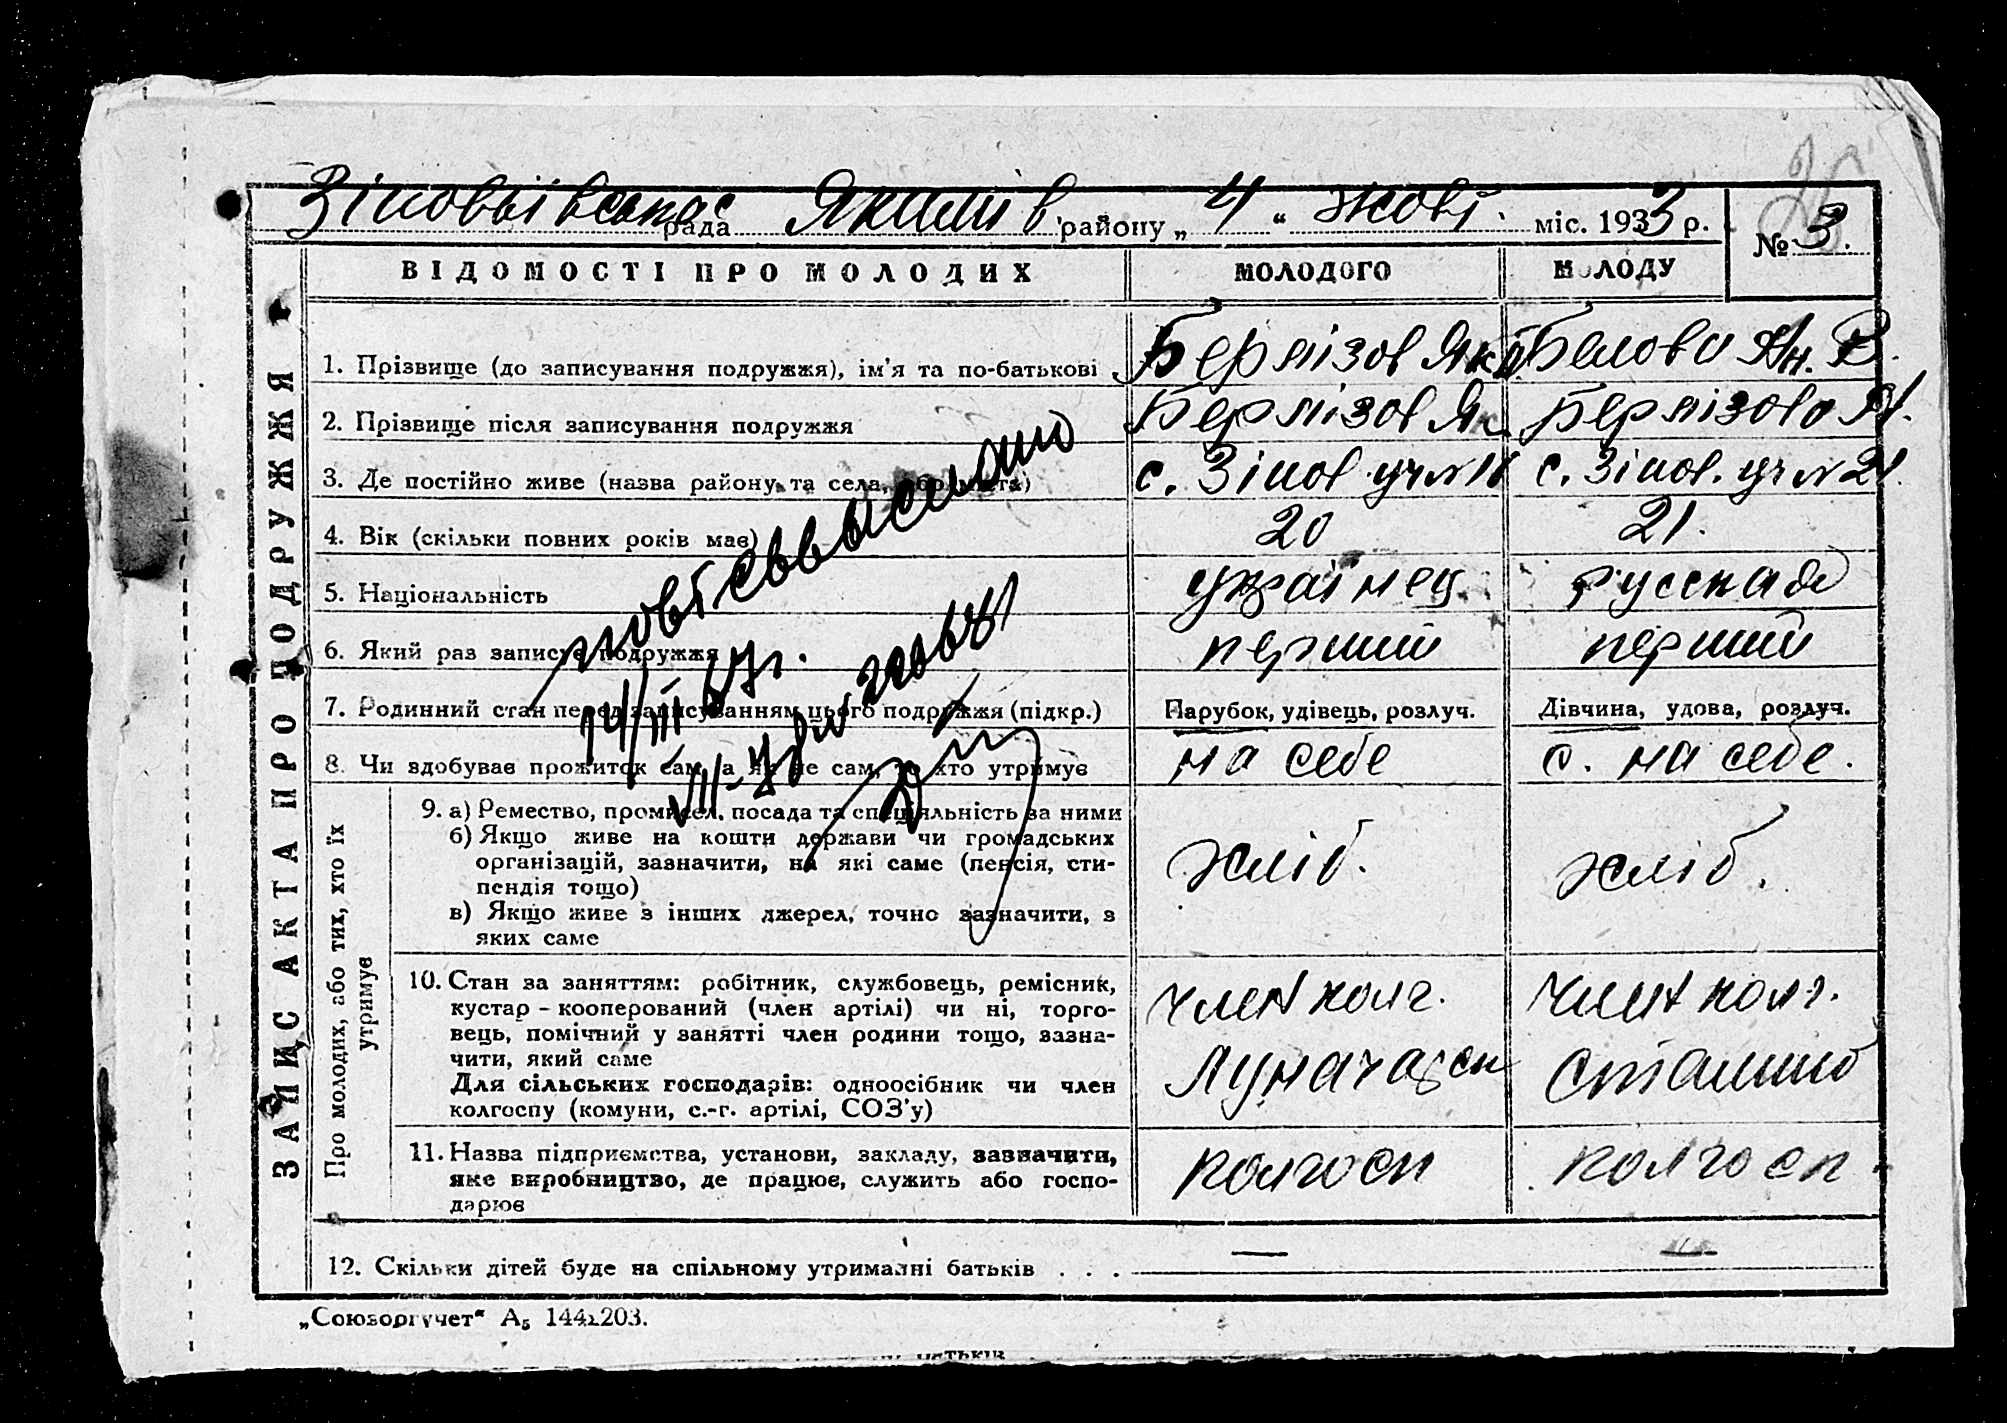 Зіновьівська рада Якимів району „ 4 “ жовт. міс. 1933 р.
№ 3.
ВІДОМОСТІ ПРО МОЛОДИХ МОЛОДОГО МОЛОДУ
ЗАПИС АКТА ПРО ПОДРУЖЖЯ
1. Прізвище (до записування подружжя), ім'я та по-батькові Бермізов Белова Ан. В.
2. Прізвище після записування подружжя Бермізов Як Бермізова А.
3. Де постійно живе (назва району та села, або міста) с. Зінов. уч № с. Зінов. уч № 21.
4. Вік (скільки повних років має) 20 21.
5. Національність українец русская
6. Який раз записує подружжя перший перший
7. Родинний стан перед записуванням цього подружжя (підкр.) Парубок, удівець, розлуч. Дівчина, удова, розлуч.
8. Чи здобуває прожиток сам, а як не сам, то хто утримує на себе с. на себе.
Про молодих, або тих, хто їх утримує
9. а) Ремество, промисел, посада та спеціяльність за ними
б) Якщо живе на кошти держави чи громадських
організацій, зазначити, на які саме (пенсія, сти-
пендія тощо) хліб. хліб.
в) Якщо живе з інших джерел, точно зазначити, з
яких саме
10. Стан за заняттям: робітник, службовець, ремісник,
кустар – кооперований (член артілі) чи ні, торго- член колг. член колг.
вець, помічний у занятті член родини тощо, зазна-
чити, який саме
Для сільських господарів: одноосібник чи член Луначарск Сталино
колгоспу (комуни, с.-г. артілі, СОЗ'у)
11. Назва підприємства, установи, закладу, зазначити,
яке виробництво, де працює, служить або госпо- колгосп колгосп
дарює
12. Скільки дітей буде на спільному утриманні батьків . . . — —
14/III 67г.
„Союзоргучет“ А₅ 144х203.